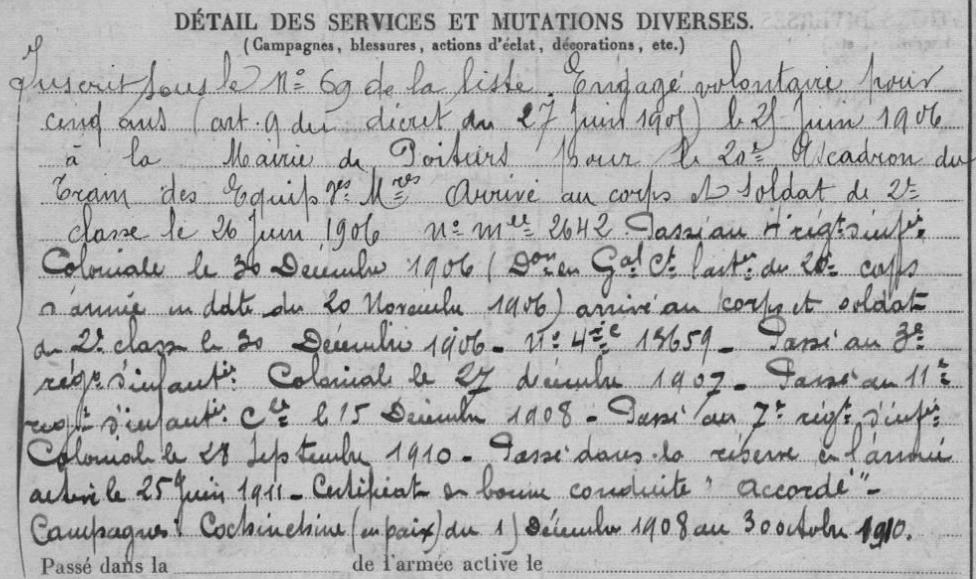 DÉTAIL DES SERVICES ET MUTATIONS DIVERSES.
(Campagnes, blessures, actions d'éclat, décorations, etc.)
Inscrit sous le N° 69 de la liste. Engagé volontaire pour
cinq ans (art. 9 du décret du 27 Juin 1905) le 25 Juin 1906
à la Mairie de Poitiers pour le 20e Escadron du
Train des Equipges Mres Arrivé au corps et soldat de 2e
classe le 26 Juin 1906 N° mle 2642 Passé au 4 régt d'infie
Coloniale le 30 Décembre 1906 (Don en Gal Ct du 20e corps
d'armée en date du 20 Novembre 1906) arrivé au corps et soldat
de 2e classe le 30 Décembre 1906 - N° 13659 - Passé au 3e
régt d'infantie Colonial le 27 décembre 1907 - Passé au 11e
regt d'infantie Cle le 15 Décembre 1908 - Passé au 7e régt d'infie
Coloniale le 28 Septembre 1910 - Passé dans la réserve de l'armée
active le 25 Juin 1911 - Certificat de bonne conduite "Accordé" -
Campagnes: Cochinchine (en paix) du 15 Décembre 1908 au 30 octobre 1910.
Passé dans la de l'armée active le